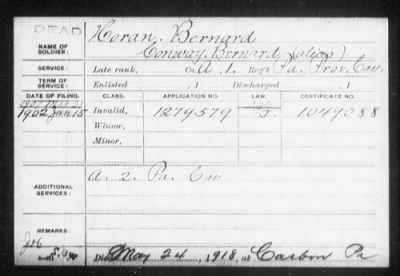 DEAD
NAME OF SOLDIER: Horan, Bernard
Conway, Bernard (alias)
SERVICE: Late rank, Co. A, 1, Reg't Pa. Prov. Cav.
TERM OF SERVICE: Enlisted , 1 Discharged , 1
DATE OF FILING. CLASS. APPLICATION NO. LAW. CERTIFICATE NO.
1902 Jan 15 Invalid, 1279579 1049088
Widow,
Minor,
ADDITIONAL SERVICES: A. 2. Pa. Cav
REMARKS:
Died May 24, 1918, at Carbon Pa